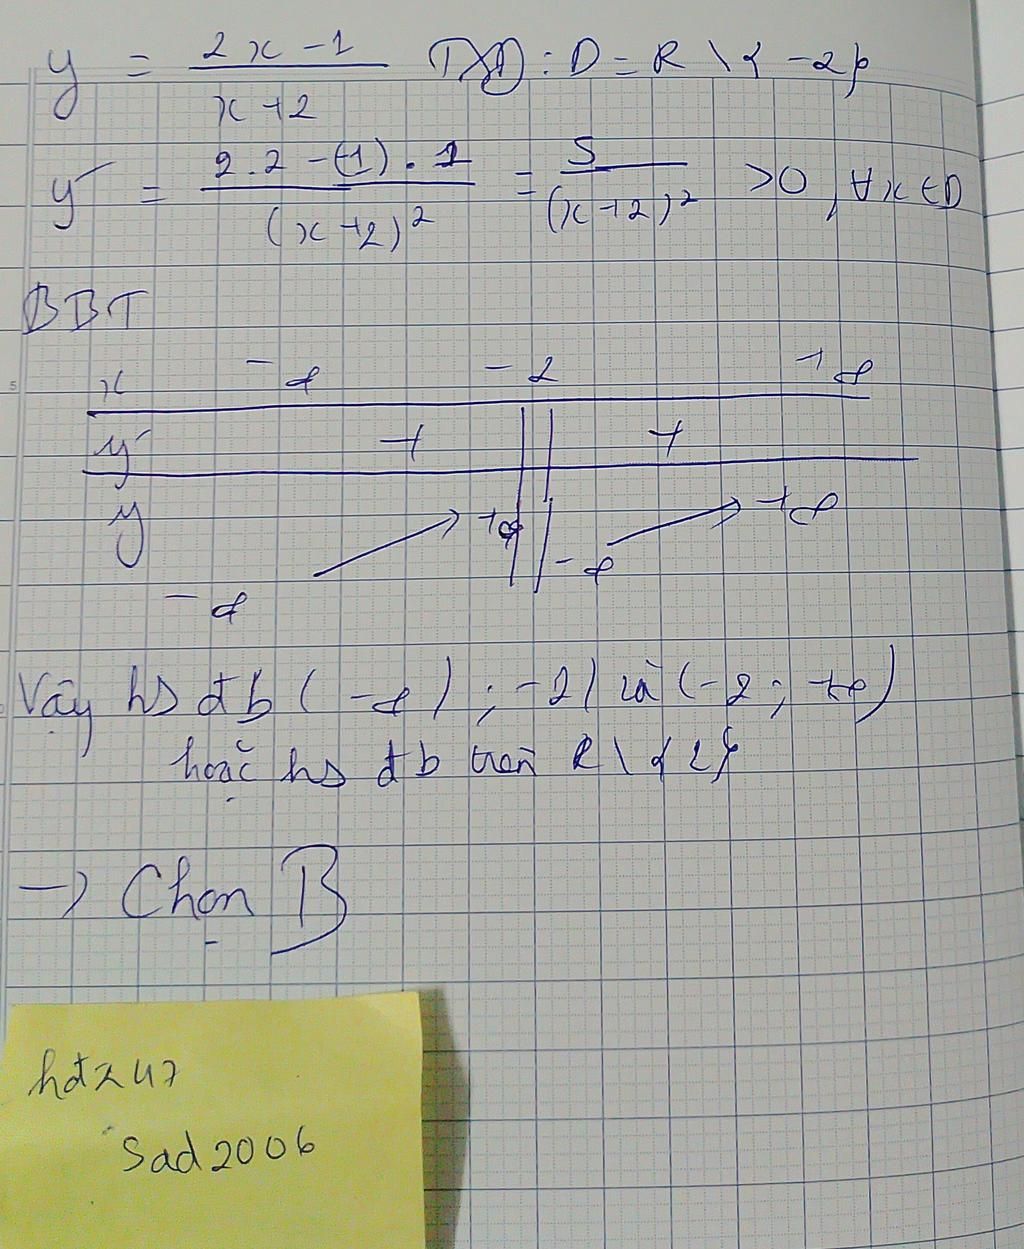 y = 2x - 1 / x + 2 TXĐ : D = R \ { -2 }
y' = 2.2 - (-1) . 1 / (x + 2)² = 5 / (x + 2)² > 0 , ∀x ∈ D
BBT
x -∞ -2 +∞
y' + || +
y -∞ ↗ +∞ || -∞ ↗ +∞
Vậy hs đb ( -∞ ) ; -2 ) và ( -2 ; +∞ )
hoặc hs đb trên R \ { 2 }
→ Chọn B
hdz47
Sad2006